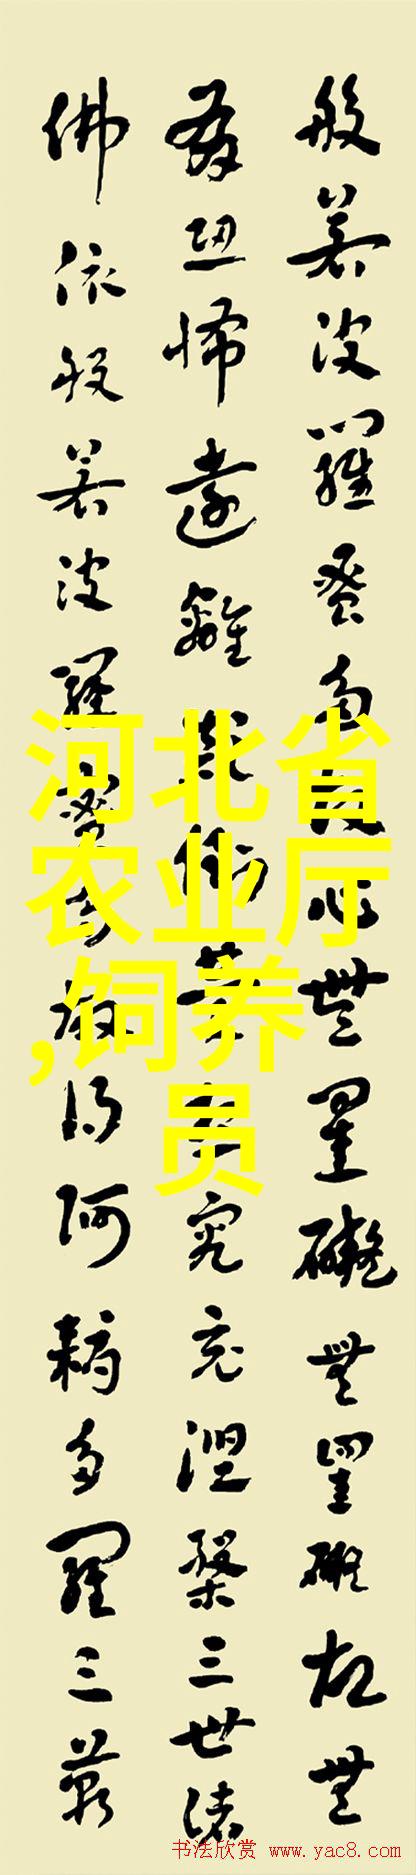 般若波羅蜜多故心無罣礙無罣礙故無
有恐怖遠離顛倒夢想究竟涅槃三世諸
佛依般若波羅蜜多故得阿耨多羅三藐
河北省
农业厅
,饲养
员
书法欣赏 www.yac8.com